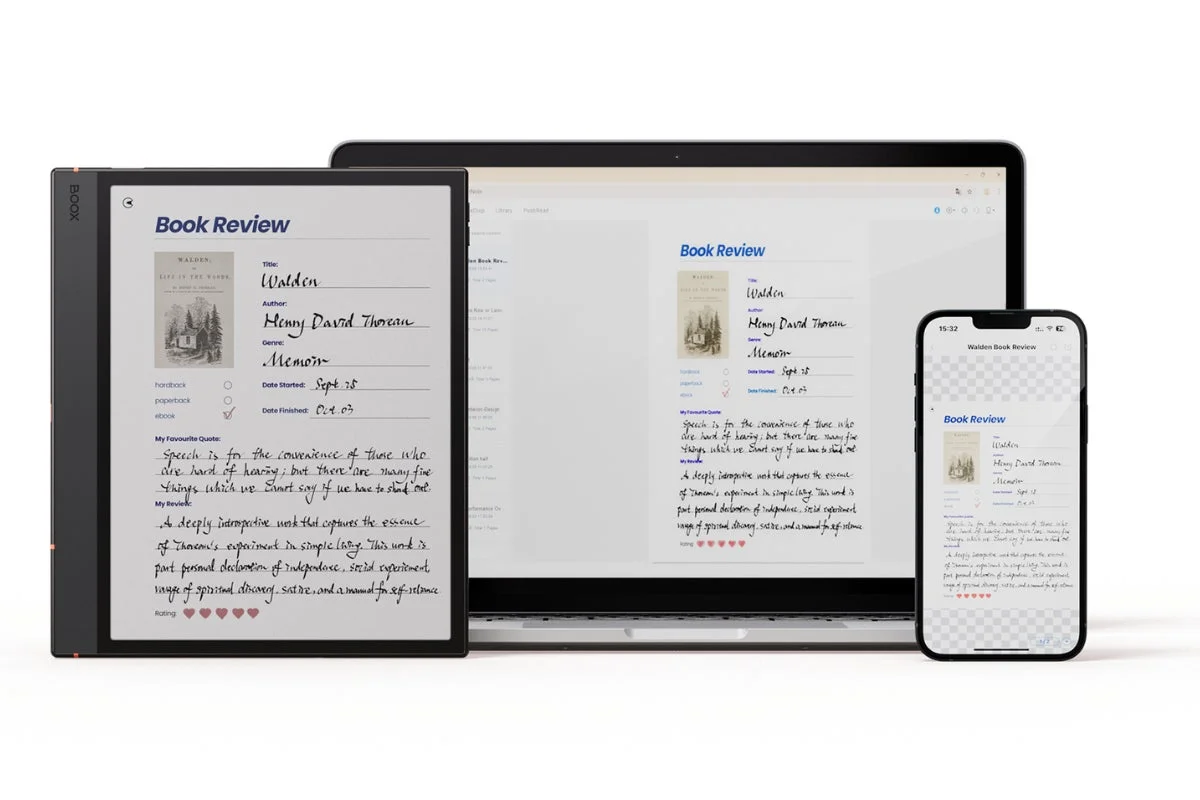 BOOX
Book Review
WALDEN;
LIFE IN THE WOODS.
Title:
Walden
Author:
Henry David Thoreau
Genre:
Memoir
hardback
paperback
ebook
Date Started: Sept. 25
Date Finished: Oct. 03
My Favourite Quote:
Speech is for the convenience of those who
are hard of hearing; but there are many fine
things which we cannot say if we have to shout out.
My Review:
A deeply introspective work that captures the essence
of Thoreau's experiment in simple living. This work is
part personal declaration of independence, social experiment,
voyage of spiritual discovery, satire, and a manual for self-reliance
Rating:
Library
Book Review
Title:
Walden
Author:
Henry David Thoreau
Genre:
Memoir
hardback
paperback
ebook
Date Started: Sept. 25
Date Finished: Oct. 03
My Favourite Quote:
Speech is for the convenience of those who
are hard of hearing; but there are many fine
things which we cannot say if we have to shout out.
My Review:
A deeply introspective work that captures the essence
of Thoreau's experiment in simple living. This work is
part personal declaration of independence, social experiment,
voyage of spiritual discovery, satire, and a manual for self-reliance
Rating:
15:32
Walden Book Review
Book Review
Title:
Walden
Henry David Thoreau
Memoir
Date Started: Sept. 25
Date Finished: Oct. 03
My Favourite Quote:
Speech is for the convenience of those who
are hard of hearing; but there are many fine
things which we cannot say if we have to shout out.
A deeply introspective work that captures the essence
of Thoreau's experiment in simple living. This work is
part personal declaration of independence, social experiment,
voyage of spiritual discovery, satire, and a manual for self-reliance